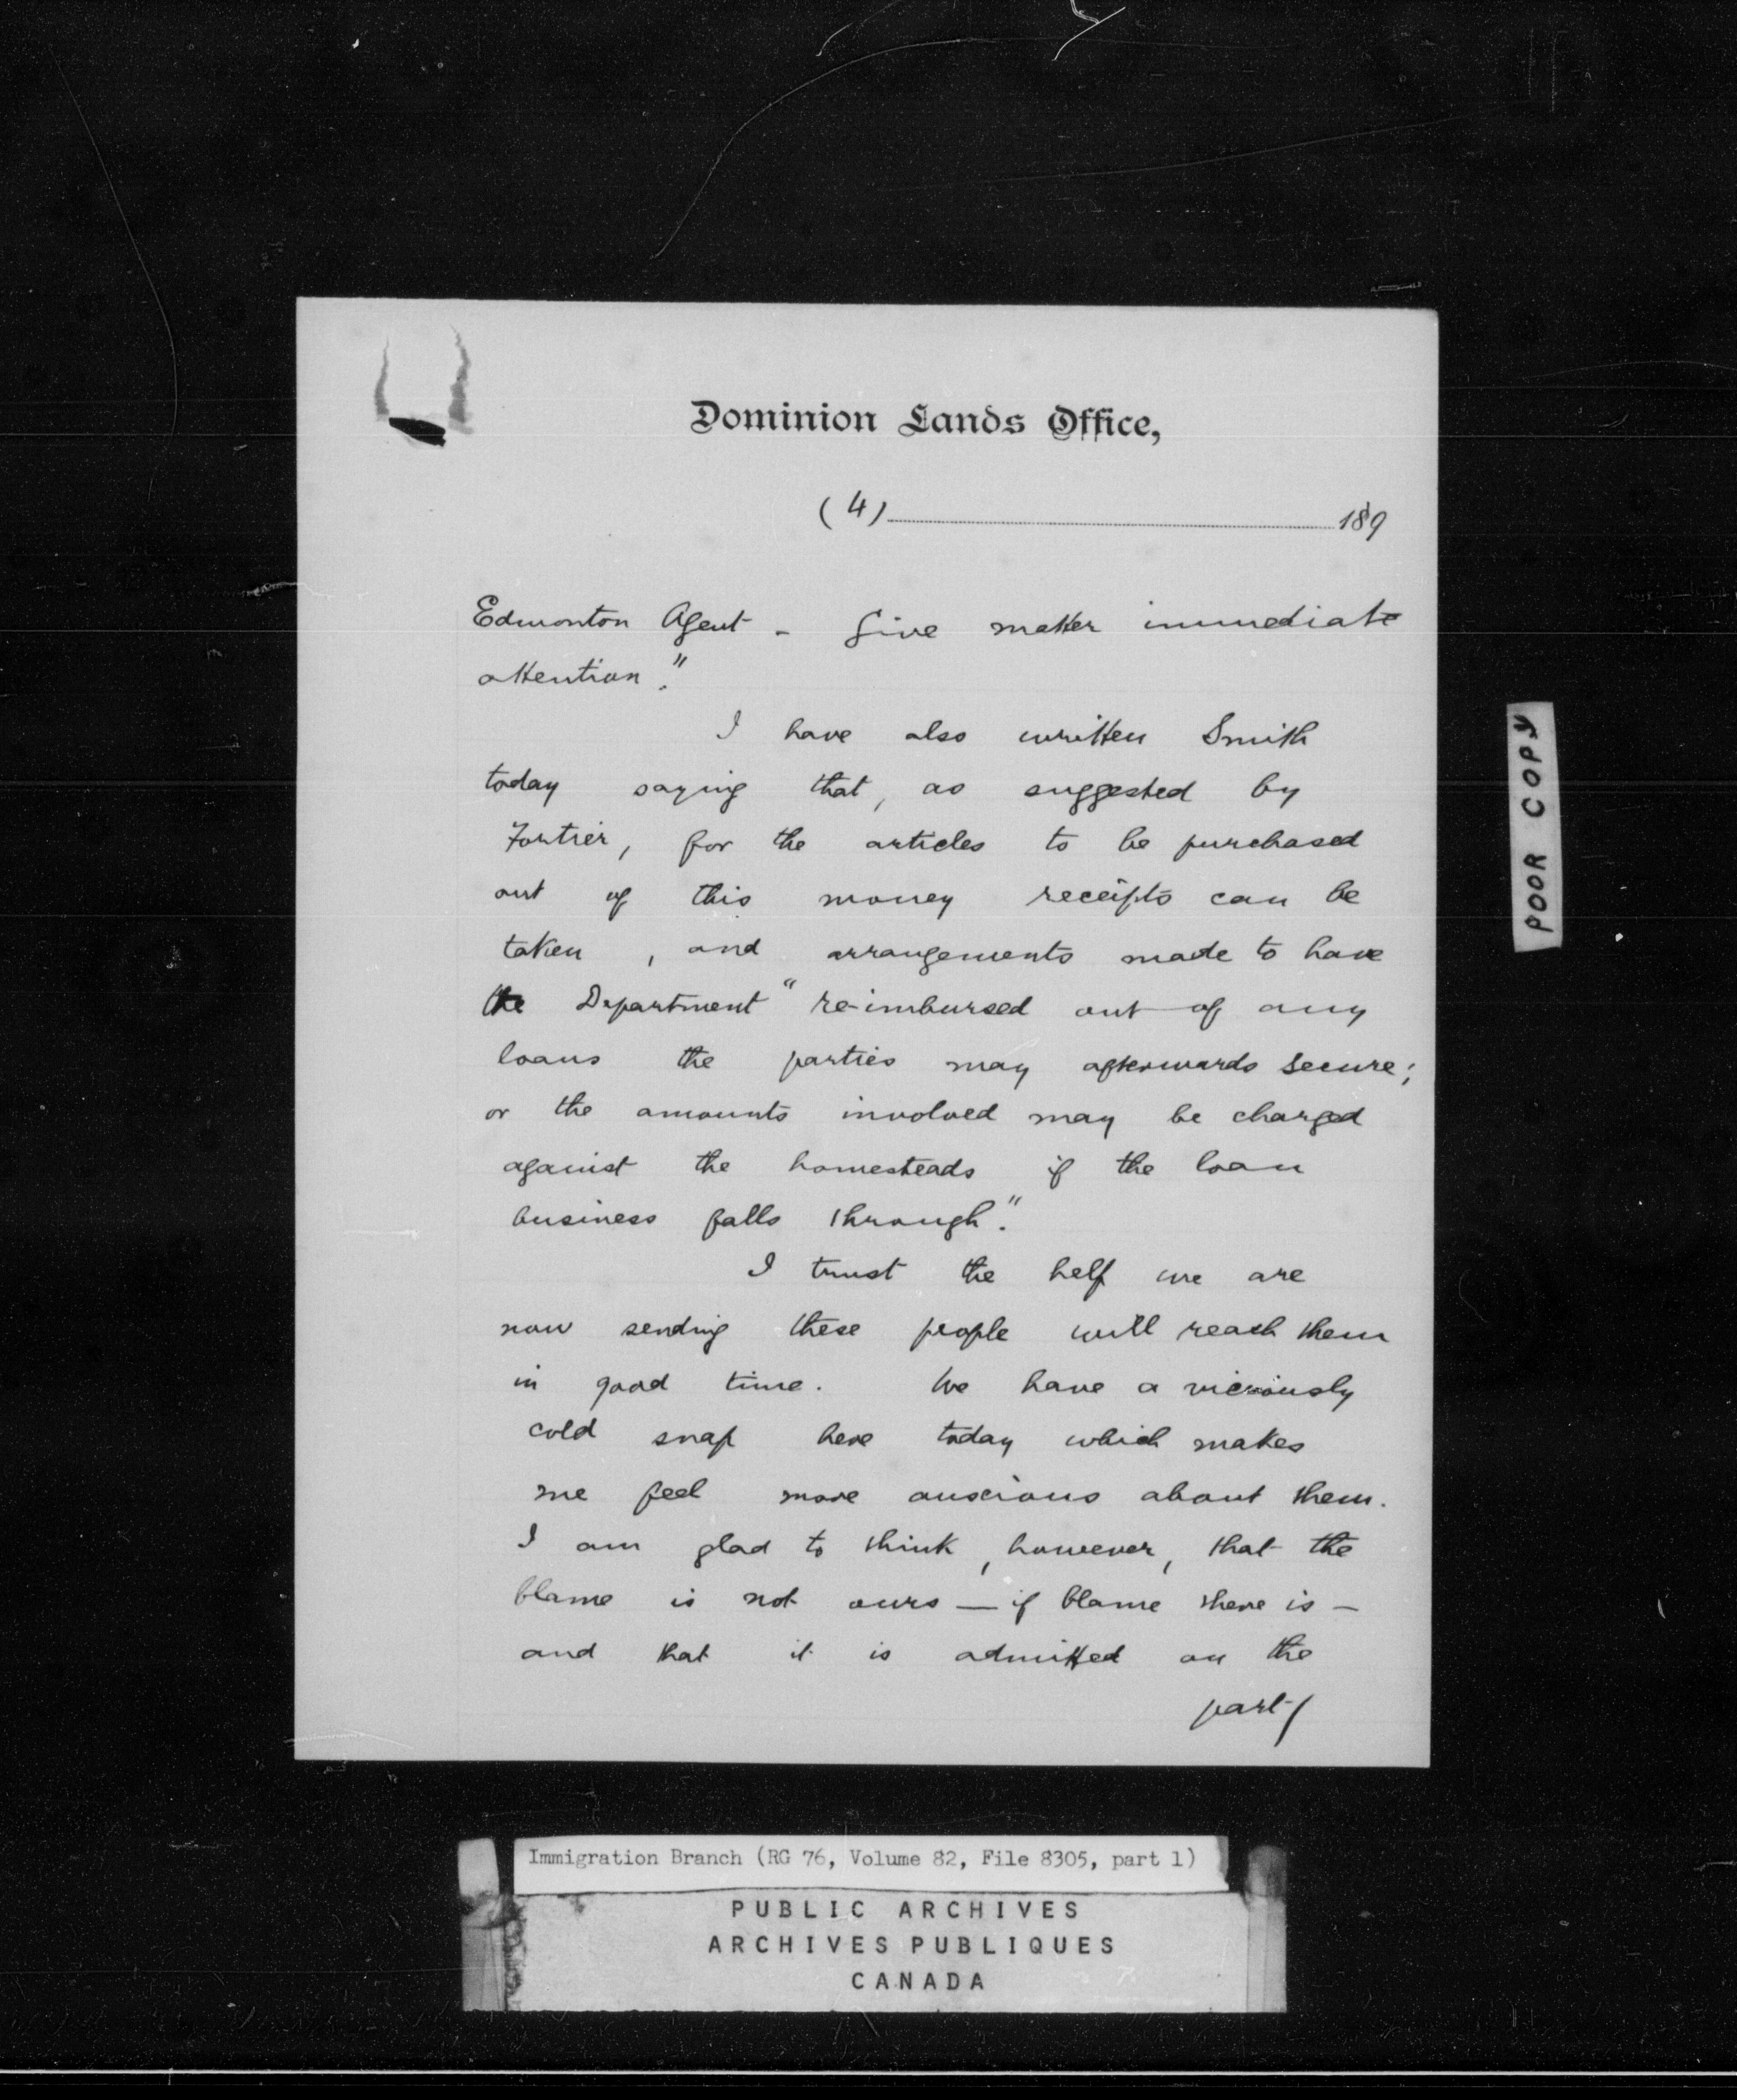 Dominion Lands Office,
(4) 189
Edmonton Agent - Give matter immediate
attention."
I have also written Smith
today saying that, as suggested by
Fortier, for the articles to be purchased
out of this money receipts can be
taken, and arrangements made to have
the Department "re-imbursed out of any
loans the parties may afterwards secure;
or the amounts involved may be charged
against the homesteads if the loan
business falls through."
I trust the help we are
now sending these people will reach them
in good time. We have a viciously
cold snap here today which makes
me feel more anxious about them.
I am glad to think, however, that the
blame is not ours — if blame there is —
and that it is admitted on the
part/
POOR COPY
Immigration Branch (RG 76, Volume 82, File 8305, part 1)
PUBLIC ARCHIVES
ARCHIVES PUBLIQUES
CANADA